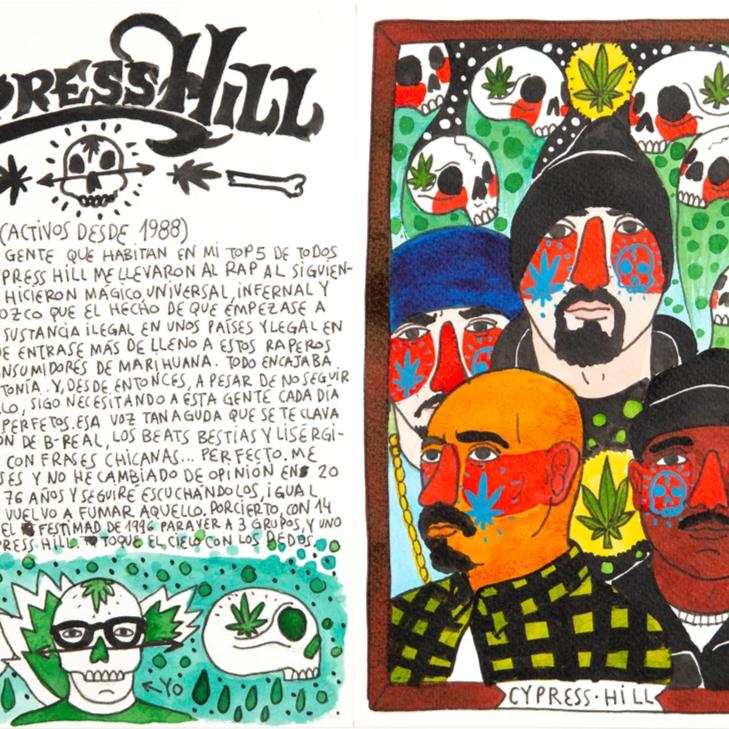 PRESS HILL
(ACTIVOS DESDE 1988)
GENTE QUE HABITAN EN MI TOP 5 DE TODOS
YPRESS HILL ME LLEVARON AL RAP AL SIGUIEN-
HICIERON MÁGICO, UNIVERSAL, INFERNAL Y
OZCO QUE EL HECHO DE QUE EMPEZASE A
SUSTANCIA ILEGAL EN UNOS PAÍSES Y LEGAL EN
E ENTRASE MÁS DE LLENO A ESTOS RAPEROS
NSUMIDORES DE MARIHUANA. TODO ENCAJABA
TONÍA. Y, DESDE ENTONCES, A PESAR DE NO SEGUIR
LO, SIGO NECESITANDO A ESTA GENTE CADA DÍA
PERFETOS. ESA VOZ TAN AGUDA QUE SE TE CLAVA
ÓN DE B-REAL, LOS BEATS BESTIAS Y LISERGI-
CON FRASES CHICANAS... PERFECTO. ME
SES Y NO HE CAMBIADO DE OPINIÓN EN 20
76 AÑOS Y SEGUIRÉ ESCUCHÁNDOLOS, IGUAL
VUELVO A FUMAR AQUELLO. POR CIERTO, CON 14
EL FESTIMAD DE 1996 PARA VER A 3 GRUPOS, Y UNO
PRESS HILL. TOQUÉ EL CIELO CON LOS DEDOS
←YO
CYPRESS·HILL